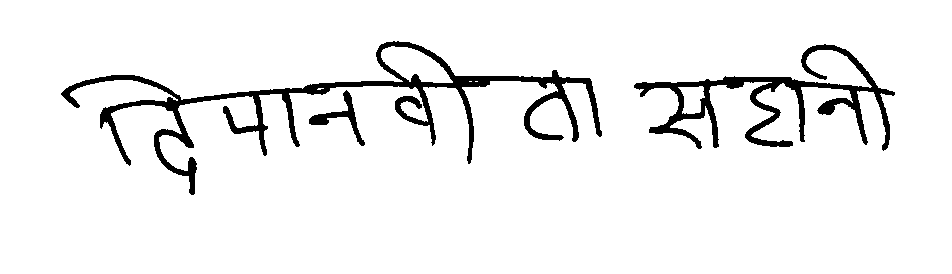 दिपानवीता सहानी